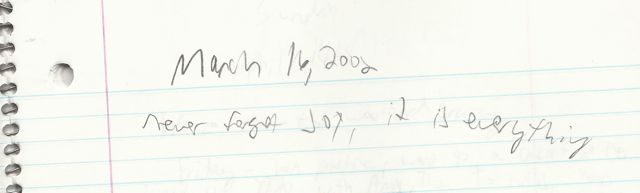 March 16, 2002
never forget Joy, it is everything